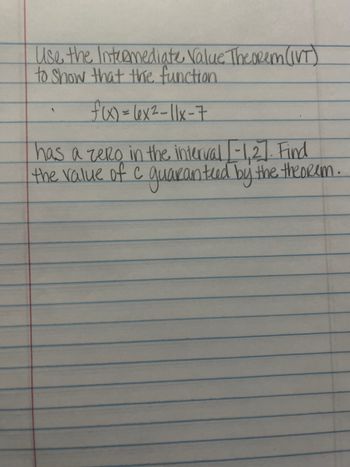 Use the Intermediate Value Theorem (IVT)
to show that the function
f(x) = 6x²-11x-7
has a zero in the interval [-1,2]. Find
the value of c guaranteed by the theorem.